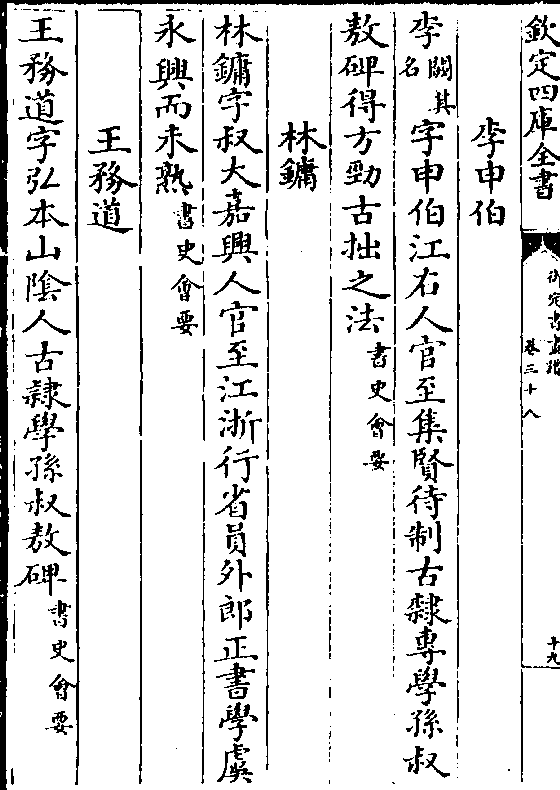 欽定四庫全書
卷三十八
十九
李申伯
李闕其名字申伯江右人官至集賢待制古隸專學孫叔
敖碑得方勁古拙之法書史會要
林鏞
林鏞字叔大嘉興人官至江浙行省員外郎正書學虞
永興而未熟書史會要
王務道
王務道字弘本山陰人古隸學孫叔敖碑書史會要